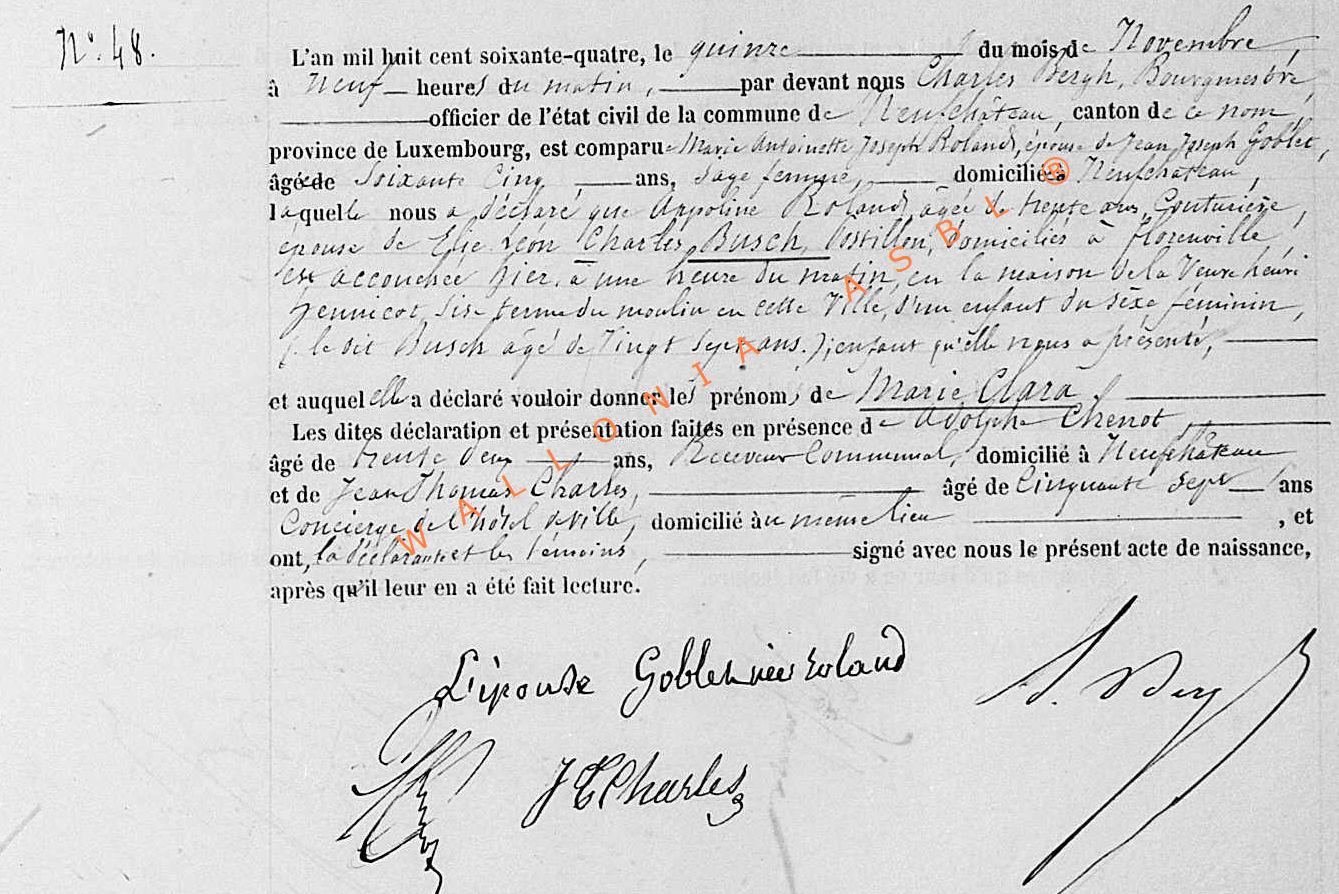 N.° 48.
L'an mil huit cent soixante-quatre, le quinze du mois de Novembre,
à Neuf heures du matin, par devant nous Charles Bergh, Bourgmestre,
officier de l'état civil de la commune de Neufchâteau, canton de ce nom,
province de Luxembourg, est comparue Marie Antoinette Joseph Roland, épouse de Jean Joseph Goblet,
âgée de Soixante Cinq ans, sage femme, domiciliée à Neufchateau,
laquelle nous a déclaré que Appoline Roland, agée de trente ans, Couturière,
épouse de Elie Léon Charles Busch, Postillon, domiciliés à florenville,
est accouchée hier, à une heure du matin, en la maison de la Veuve henri
Jennicot, sise ferme du moulin en cette Ville, d'un enfant du sexe féminin,
(le dit Busch agé de Vingt Sept ans.); enfant qu'elle nous a présenté,
et auquel elle a déclaré vouloir donner les prénoms de Marie Clara.
Les dites déclaration et présentation faites en présence de Adolphe Chenot,
âgé de trente deux ans, Receveur Communal, domicilié à Neufchâteau
et de Jean Thomas Charles, âgé de Cinquante Sept ans
Concierge de l'hôtel de Ville, domicilié à u même lieu , et
ont, la déclarante et les témoins, signé avec nous le présent acte de naissance,
après qu'il leur en a été fait lecture.
L'épouse Goblet née roland
J T Charles
WALLONIA ASBL ®